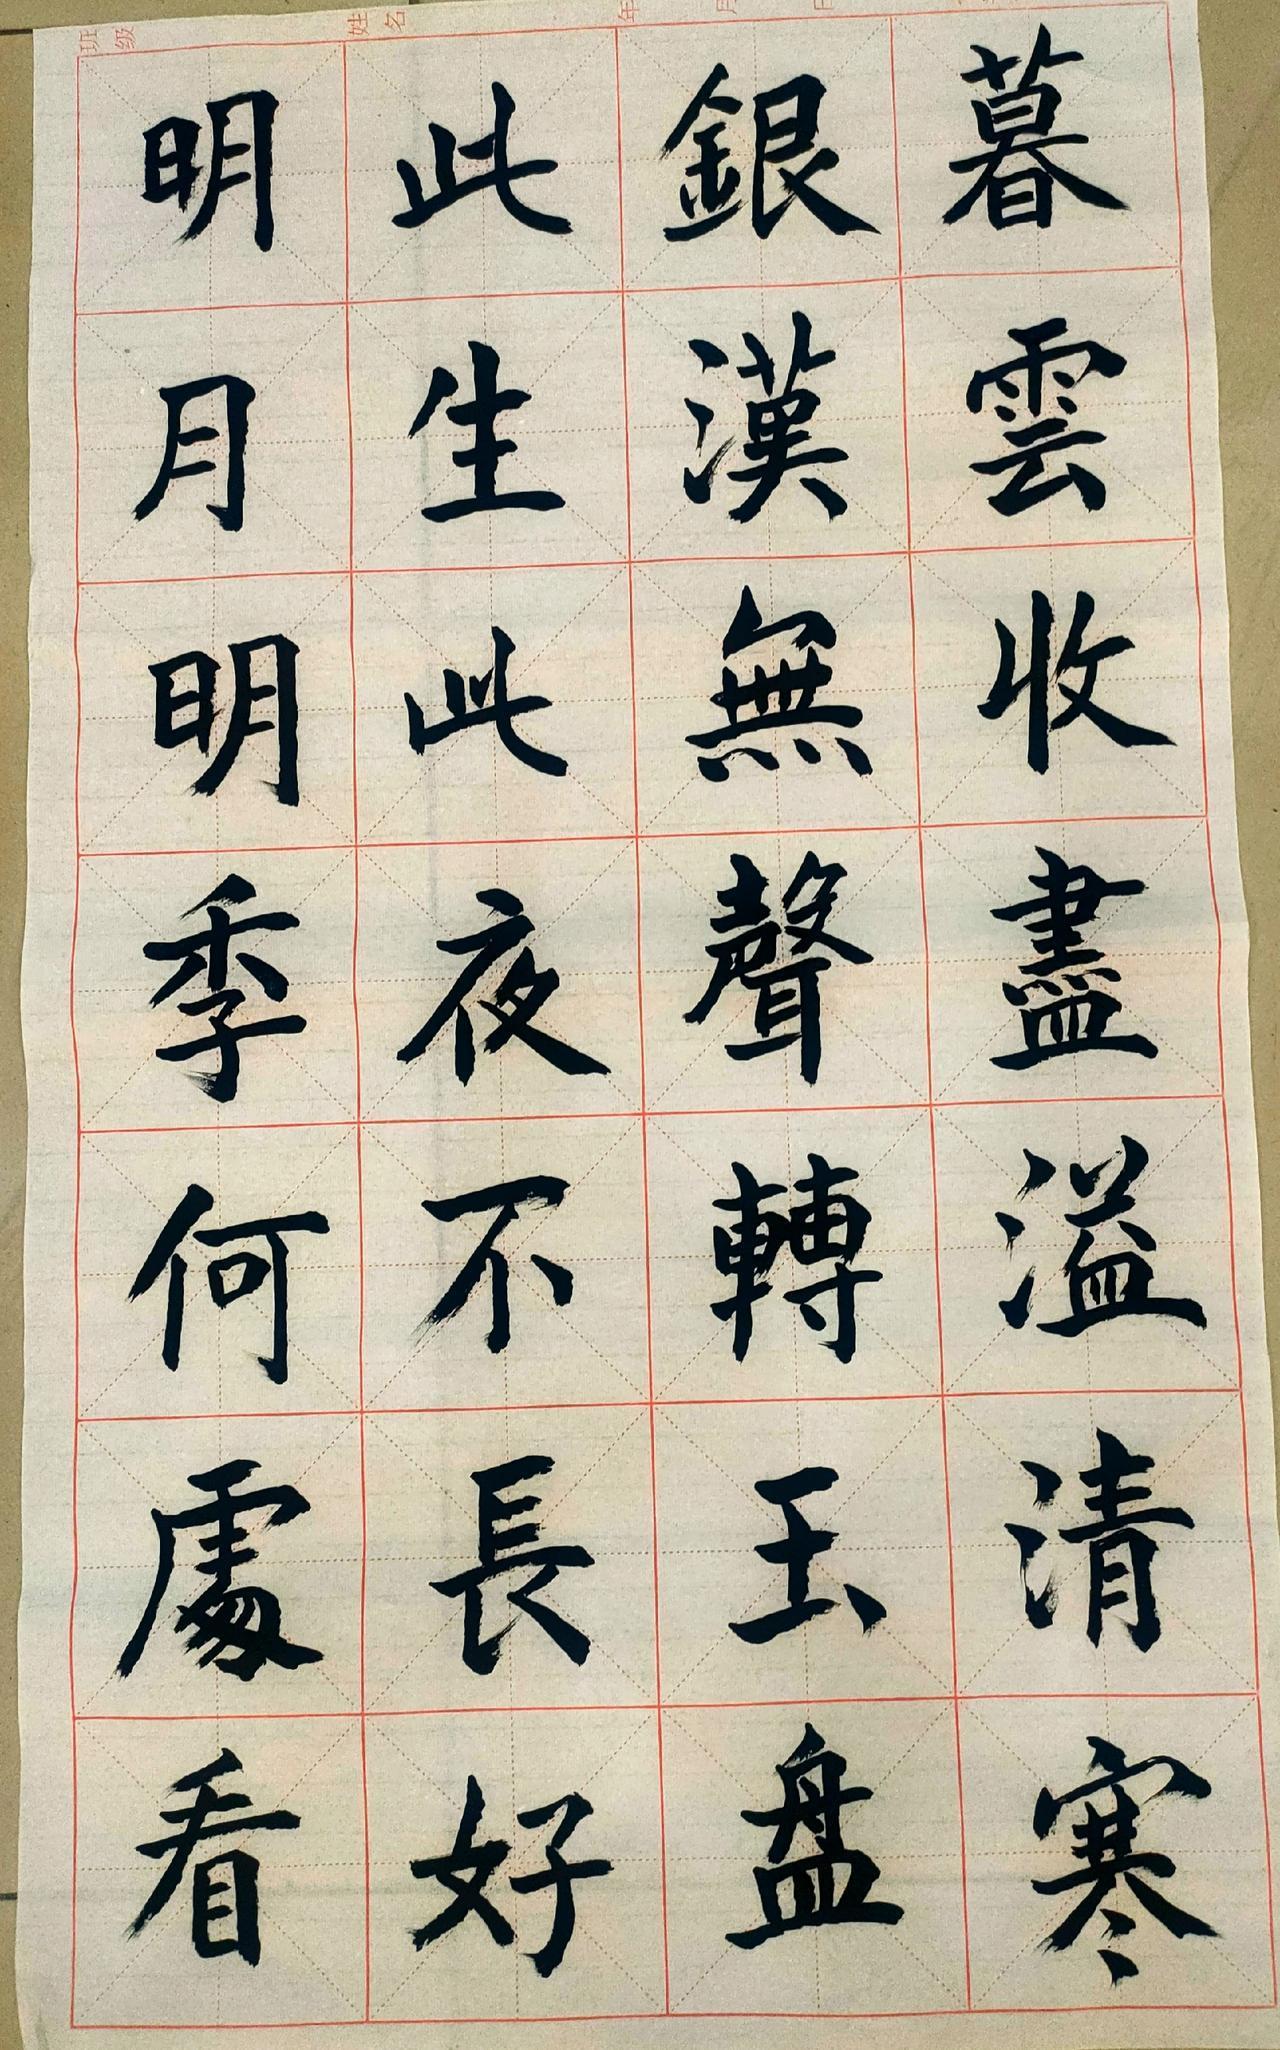 班级 姓名 年 月 日
暮雲收盡溢清寒
銀漢無聲轉玉盘
此生此夜不長好
明月明季何處看